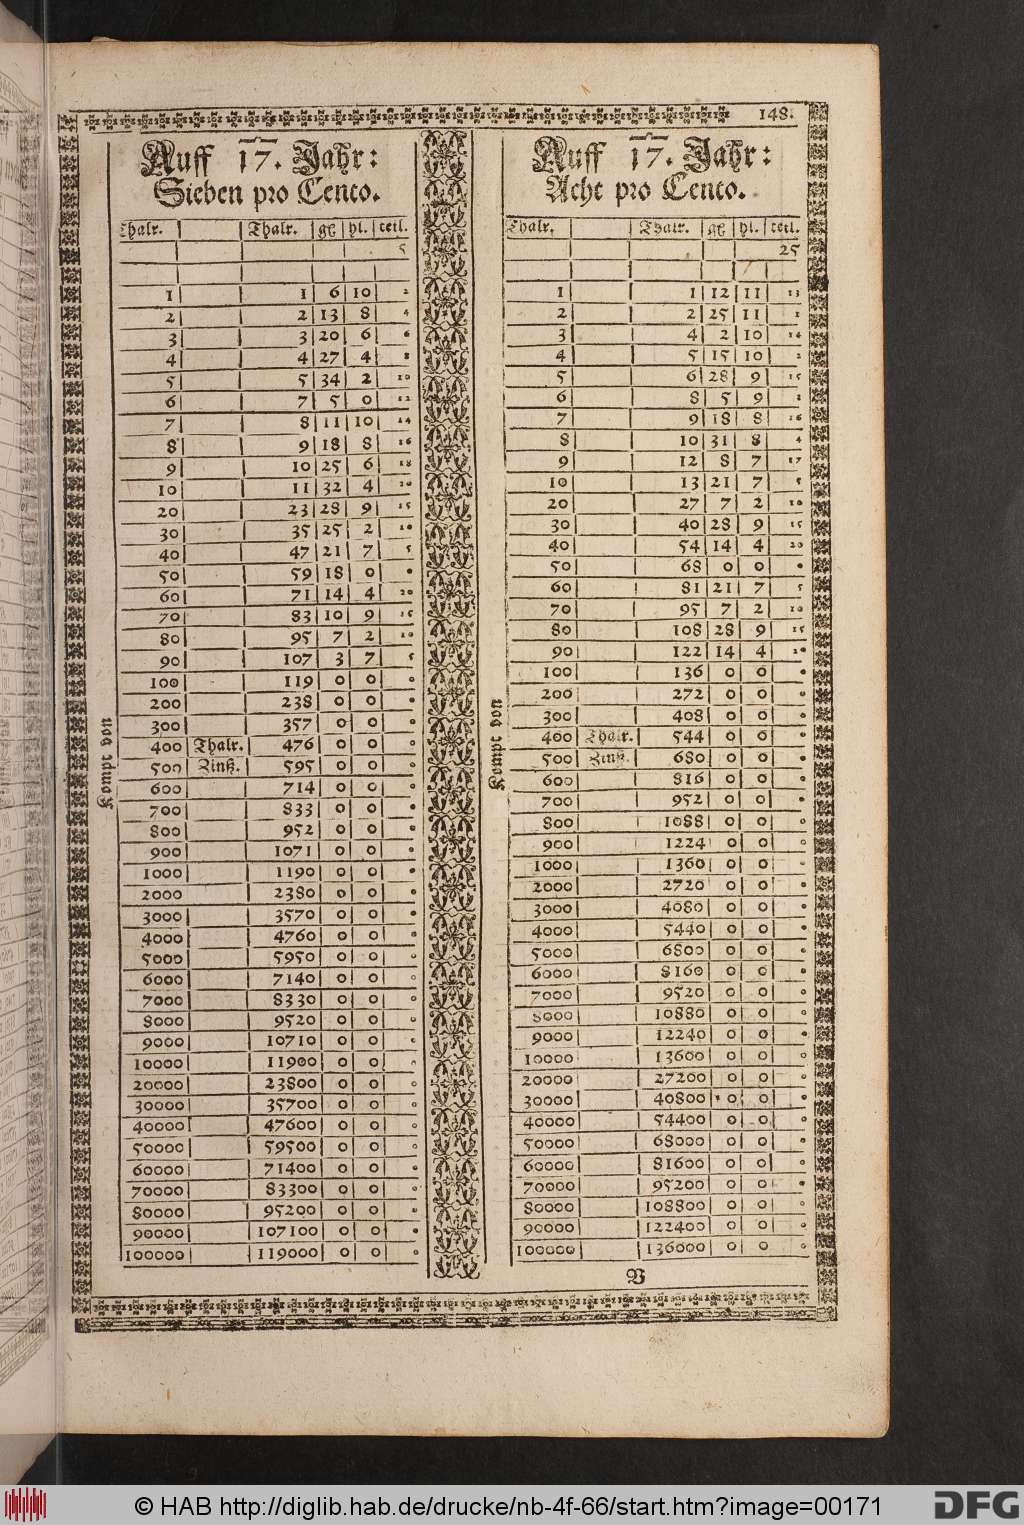 148.
Auff 17. Jahr:
Sieben pro Cento.
Thalr. Thalr. gß hl. teil.
5
1 1 6 10 2
2 2 13 8 4
3 3 20 6 6
4 4 27 4 8
5 5 34 2 10
6 7 5 0 12
7 8 11 10 14
8 9 18 8 16
9 10 25 6 18
10 11 32 4 20
20 23 28 9 15
30 35 25 2 10
40 47 21 7 5
50 59 18 0 0
60 71 14 4 20
70 83 10 9 15
80 95 7 2 10
90 107 3 7 5
100 119 0 0 0
200 238 0 0 0
300 357 0 0 0
400 Thalr. 476 0 0 0
500 Zinß. 595 0 0 0
600 714 0 0 0
700 833 0 0 0
800 952 0 0 0
900 1071 0 0 0
1000 1190 0 0 0
2000 2380 0 0 0
3000 3570 0 0 0
4000 4760 0 0 0
5000 5950 0 0 0
6000 7140 0 0 0
7000 8330 0 0 0
8000 9520 0 0 0
9000 10710 0 0 0
10000 11900 0 0 0
20000 23800 0 0 0
30000 35700 0 0 0
40000 47600 0 0 0
50000 59500 0 0 0
60000 71400 0 0 0
70000 83300 0 0 0
80000 95200 0 0 0
90000 107100 0 0 0
100000 119000 0 0 0
Kompt von
Auff 17. Jahr:
Acht pro Cento.
Thalr. Thalr. gß hl. teil.
25
1 1 12 11 13
2 2 25 11 1
3 4 2 10 14
4 5 15 10 2
5 6 28 9 15
6 8 5 9
7 9 18 8 16
8 10 31 8 4
9 12 8 7 17
10 13 21 7 5
20 27 7 2 10
30 40 28 9 15
40 54 14 4 20
50 68 0 0 0
60 81 21 7 5
70 95 7 2 10
80 108 28 9 15
90 122 14 4 20
100 136 0 0 0
200 272 0 0 0
300 408 0 0 0
400 Thalr. 544 0 0 0
500 Zinß. 680 0 0 0
600 816 0 0 0
700 952 0 0 0
800 1088 0 0 0
900 1224 0 0 0
1000 1360 0 0 0
2000 2720 0 0 0
3000 4080 0 0 0
4000 5440 0 0 0
5000 6800 0 0 0
6000 8160 0 0 0
7000 9520 0 0 0
8000 10880 0 0 0
9000 12240 0 0 0
10000 13600 0 0 0
20000 27200 0 0 0
30000 40800 0 0 0
40000 54400 0 0 0
50000 68000 0 0 0
60000 81600 0 0 0
70000 95200 0 0 0
80000 108800 0 0 0
90000 122400 0 0 0
100000 136000 0 0 0
Kompt von
B
© HAB http://diglib.hab.de/drucke/nb-4f-66/start.htm?image=00171
DFG